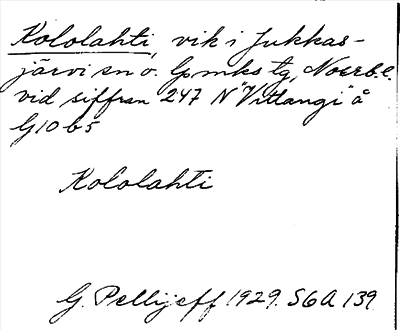 Kololahti, vik i Jukkas-
järvi sn o. Gpmks tg, Norrb. l.
vid siffran 247 N "Vittangi" å
G10 b5
Kololahti
G. Pellijeff 1929. S6A 139